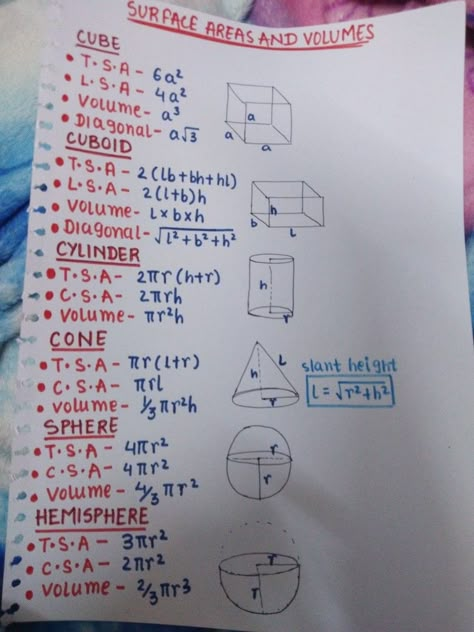 SURFACE AREAS AND VOLUMES
CUBE
• T.S.A - 6a²
• L.S.A - 4a²
• Volume - a³
• Diagonal - a√3
a
a
a
CUBOID
• T.S.A - 2(lb+bh+hl)
• L.S.A - 2(l+b)h
• Volume - L×b×h
• Diagonal - √l²+b²+h²
h
b
L
CYLINDER
• T.S.A - 2πr(h+r)
• C.S.A - 2πrh
• Volume - πr²h
h
r
CONE
• T.S.A - πr(l+r)
• C.S.A - πrl
• Volume - 1/3 πr²h
h
L
r
slant height
l = √r²+h²
SPHERE
• T.S.A - 4πr²
• C.S.A - 4πr²
• Volume - 4/3 πr²
r
r
HEMISPHERE
• T.S.A - 3πr²
• C.S.A - 2πr²
• Volume - 2/3 πr3
r
r